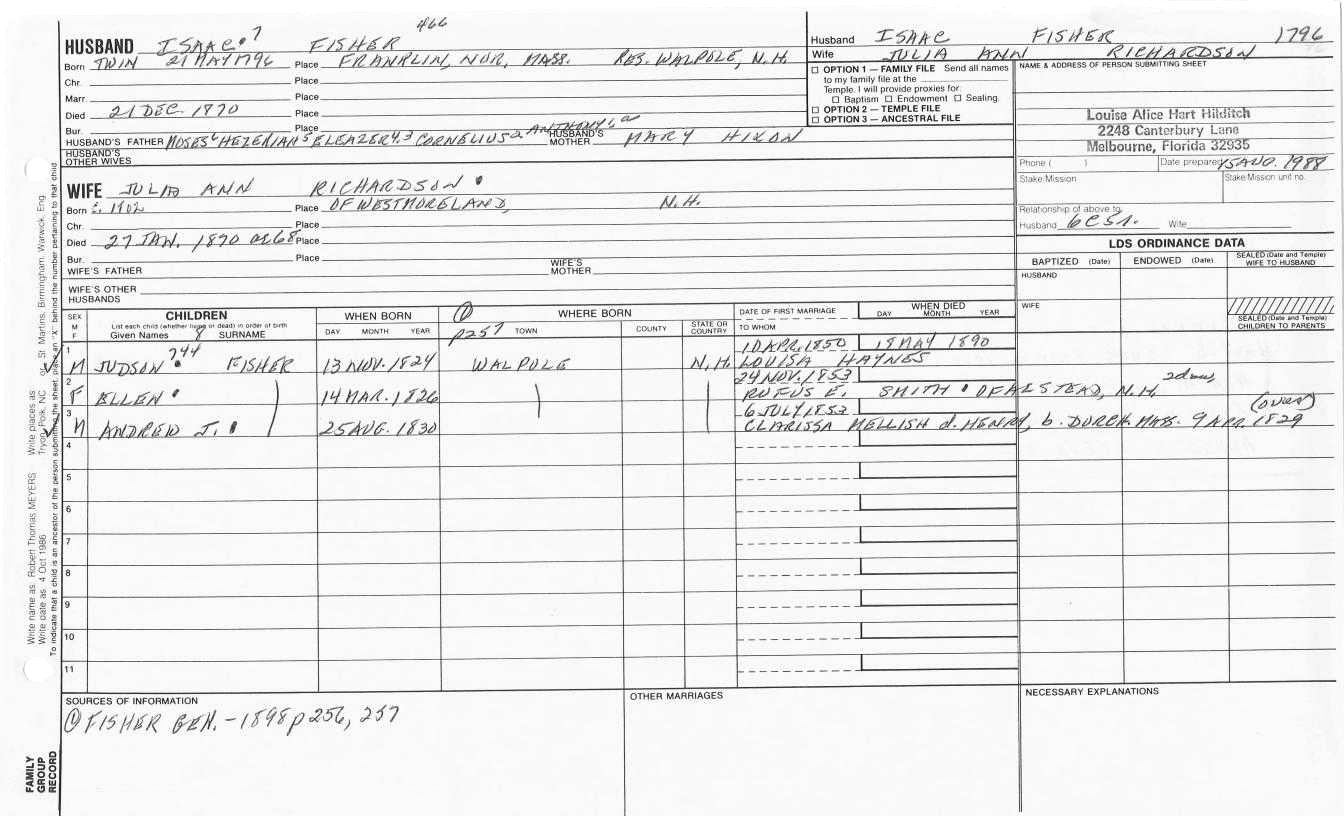 466
HUSBAND ISAAC 7 FISHER
Born TWIN 21 MAY 1796 Place FRANKLIN, NOR, MASS. RES. WALPOLE, N.H.
Chr. Place
Marr. Place
Died 21 DEC. 1870 Place
Bur. Place
HUSBAND'S FATHER MOSES 6 HEZEKIAH 5 ELEAZER 4,3 CORNELIUS 2 ANTHONY HUSBAND'S MOTHER MARY HIXON
HUSBAND'S OTHER WIVES
Husband ISAAC FISHER 1796
Wife JULIA ANN RICHARDSON
☐ OPTION 1 — FAMILY FILE Send all names
to my family file at the
Temple. I will provide proxies for:
☐ Baptism ☐ Endowment ☐ Sealing.
☐ OPTION 2 — TEMPLE FILE
☐ OPTION 3 — ANCESTRAL FILE
NAME & ADDRESS OF PERSON SUBMITTING SHEET
Louise Alice Hart Hilditch
2248 Canterbury Lane
Melbourne, Florida 32935
Phone ( ) Date prepared 15 AUG. 1988
Stake/Mission Stake/Mission unit no.
Relationship of above to:
Husband 6C5R. Wife
WIFE JULIA ANN RICHARDSON
Born c. 1802 Place OF WESTMORELAND, N.H.
Chr. Place
Died 27 JAN. 1870 or 68 Place
Bur. Place
WIFE'S FATHER WIFE'S MOTHER
WIFE'S OTHER HUSBANDS
LDS ORDINANCE DATA
BAPTIZED (Date) ENDOWED (Date) SEALED (Date and Temple) WIFE TO HUSBAND
HUSBAND
WIFE
SEALED (Date and Temple) CHILDREN TO PARENTS
SEX M F
CHILDREN
List each child (whether living or dead) in order of birth
Given Names 8 SURNAME
WHEN BORN
DAY MONTH YEAR
① p257
WHERE BORN
TOWN COUNTY STATE OR COUNTRY
DATE OF FIRST MARRIAGE
TO WHOM
WHEN DIED
DAY MONTH YEAR
1 M JUDSON 744 FISHER 13 NOV. 1824 WALPOLE N.H. 10 APR. 1850 18 MAY 1890
LOUISA HAYNES
2 F ELLEN 14 MAR. 1826 24 NOV. 1853
RUFUS E. SMITH OF ALSTEAD, N.H. 2dm,
3 M ANDREW J. 25 AUG. 1830 6 JULY 1853
CLARISSA MELLISH d. HENRY, b. DORCH. MASS. 9 APR. 1829 (over)
4
5
6
7
8
9
10
11
SOURCES OF INFORMATION
① FISHER GEN. - 1898 p 256, 257
OTHER MARRIAGES
NECESSARY EXPLANATIONS
Write name as Robert Thomas MEYERS Write places as Tryon, Polk, NC or St. Martins, Birmingham, Warwick, Eng
Write date as 4 Oct 1986
To indicate that a child is an ancestor of the person submitting the sheet, place an "X" behind the number pertaining to that child.
FAMILY
GROUP
RECORD